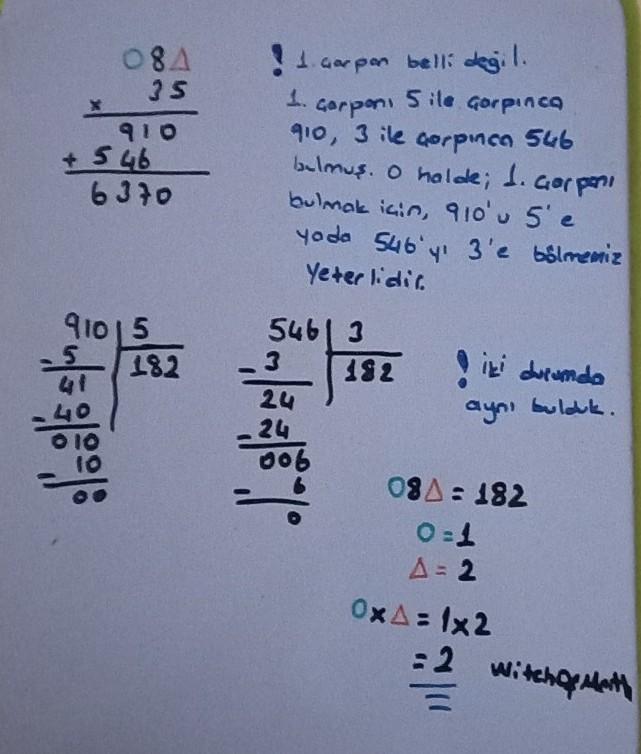 O8Δ
x 35
910
+ 546
6370
! 1. çarpan belli değil.
1. çarpanı 5 ile çarpınca
910, 3 ile çarpınca 546
bulmuş. O halde; 1. çarpanı
bulmak için, 910'u 5'e
yada 546'yı 3'e bölmemiz
Yeterlidir.
910 | 5
- 5 182
41
- 40
010
- 10
00
546 | 3
- 3 182
24
- 24
006
- 6
0
! iki durumda
aynı bulduk.
O8Δ = 182
O = 1
Δ = 2
O x Δ = 1 x 2
= 2
WitchOfMath